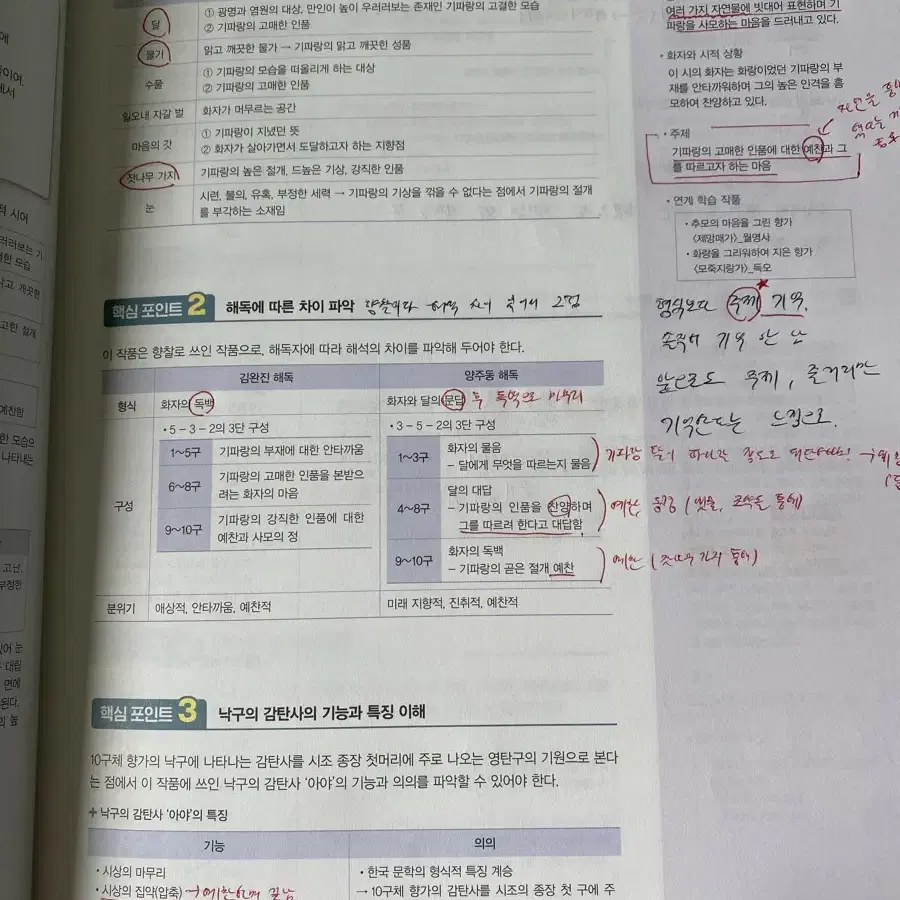 달
① 광명과 염원의 대상, 만인이 높이 우러러보는 존재인 기파랑의 고결한 모습
② 기파랑의 고매한 인품
물가
맑고 깨끗한 물가 → 기파랑의 맑고 깨끗한 성품
수풀
① 기파랑의 모습을 떠올리게 하는 대상
② 기파랑의 고매한 인품
일오내 자갈 벌
화자가 머무르는 공간
마음의 갓
① 기파랑이 지녔던 뜻
② 화자가 살아가면서 도달하고자 하는 지향점
잣나무 가지
기파랑의 높은 절개, 드높은 기상, 강직한 인품
눈
시련, 불의, 유혹, 부정한 세력 → 기파랑의 기상을 꺾을 수 없다는 점에서 기파랑의 절개
를 부각하는 소재임
핵심 포인트 2
해독에 따른 차이 파악
이 작품은 향찰로 쓰인 작품으로, 해독자에 따라 해석의 차이를 파악해 두어야 한다.
김완진 해독
양주동 해독
형식
화자의 독백
화자와 달의 문답 후 독백으로 마무리
구성
• 5 – 3 – 2의 3단 구성
1~5구
기파랑의 부재에 대한 안타까움
6~8구
기파랑의 고매한 인품을 본받으
려는 화자의 마음
9~10구
기파랑의 강직한 인품에 대한
예찬과 사모의 정
• 3 – 5 – 2의 3단 구성
1~3구
화자의 물음
– 달에게 무엇을 따르는지 물음
4~8구
달의 대답
– 기파랑의 인품을 찬양하며
그를 따르려 한다고 대답함
9~10구
화자의 독백
– 기파랑의 곧은 절개 예찬
예찬
예찬
분위기
애상적, 안타까움, 예찬적
미래 지향적, 진취적, 예찬적
핵심 포인트 3
낙구의 감탄사의 기능과 특징 이해
10구체 향가의 낙구에 나타나는 감탄사를 시조 종장 첫머리에 주로 나오는 영탄구의 기원으로 본다
는 점에서 이 작품에 쓰인 낙구의 감탄사 '아야'의 기능과 의의를 파악할 수 있어야 한다.
+ 낙구의 감탄사 '아야'의 특징
기능
의의
• 시상의 마무리
• 시상의 집약(압축)
• 한국 문학의 형식적 특징 계승
→ 10구체 향가의 감탄사를 시조의 종장 첫 구에 주
여러 가지 자연물에 빗대어 표현하며 기
파랑을 사모하는 마음을 드러내고 있다.
• 화자와 시적 상황
이 시의 화자는 화랑이었던 기파랑의 부
재를 안타까워하며 그의 높은 인격을 흠
모하여 찬양하고 있다.
• 주제
기파랑의 고매한 인품에 대한 예찬과 그
를 따르고자 하는 마음
• 연계 학습 작품
• 추모의 마음을 그린 향가
〈제망매가〉_월명사
• 화랑을 그리워하여 지은 향가
〈모죽지랑가〉_득오
형식보다 주제 기억.
솔직히 기억 안 남
앞으로도 주제, 줄거리만
기억한다는 느낌으로.